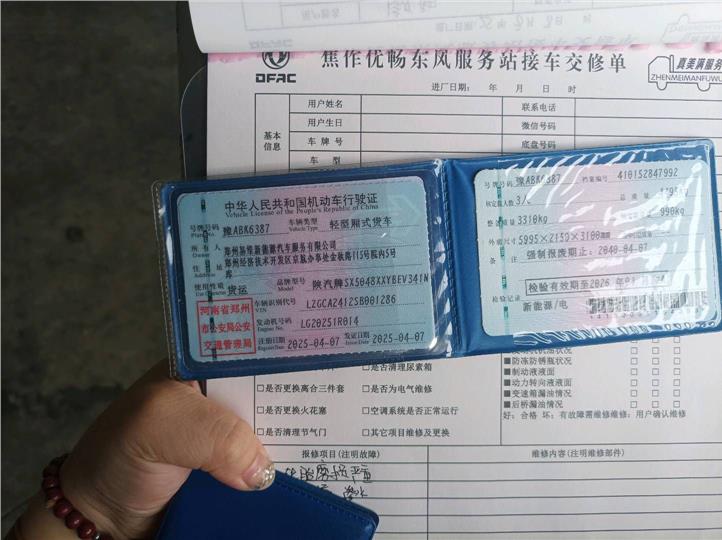 DFAC
焦作优畅东风服务站接车交修单
真美满服务
ZHENMEIMANFUWU
进厂日期: 年 月 日 时
基本信息
用户姓名
联系电话
用户生日
微信号码
车 牌 号
底盘号码
车 型
中华人民共和国机动车行驶证
Vehicle License of the People's Republic of China
号牌号码 豫ABK6387 车辆类型 轻型厢式货车
Plate No. Vehicle Type
所有人
Owner
新能源汽车服务有限公司
住址
Address
郑州经济技术开发区京航办事处金
路115号院内5号
库
使用性质 货运 品牌型号 陕汽牌SX5048XXYBEV341N
Use Character Model
河南省郑州
市公安局公安
交通管理局
车辆识别代号 LZGCA2412SB001286
VIN
发动机号码 LG20251R014
Engine No.
注册日期 2025-04-07 发证日期 2025-04-07
Register Date Issue Date
号牌号码 豫ABK6387 档案编号 410152847992
核定载人数 3人 总质量
整备质量 3310kg 990kg
外廓尺寸 5995×2150×3100
备注 强制报废期止: 2040-04-07
检验有效期至2026年
检验记录
新能源/电
防冻防锈瓶状况
制动液液面
动力转向液液面
变速箱漏油情况
后桥漏油情况
好: 合格 坏: 有故障需维修维修: 用户确认维修
是否清理尿素箱
□是否更换离合三件套
□是否为电气维修
□是否更换火花塞
□空调系统是否正常运行
□是否清理节气门
□其它项目维修及更换
报修项目(注明故障)
维修内容(注明维修部件)
胎磨损严重